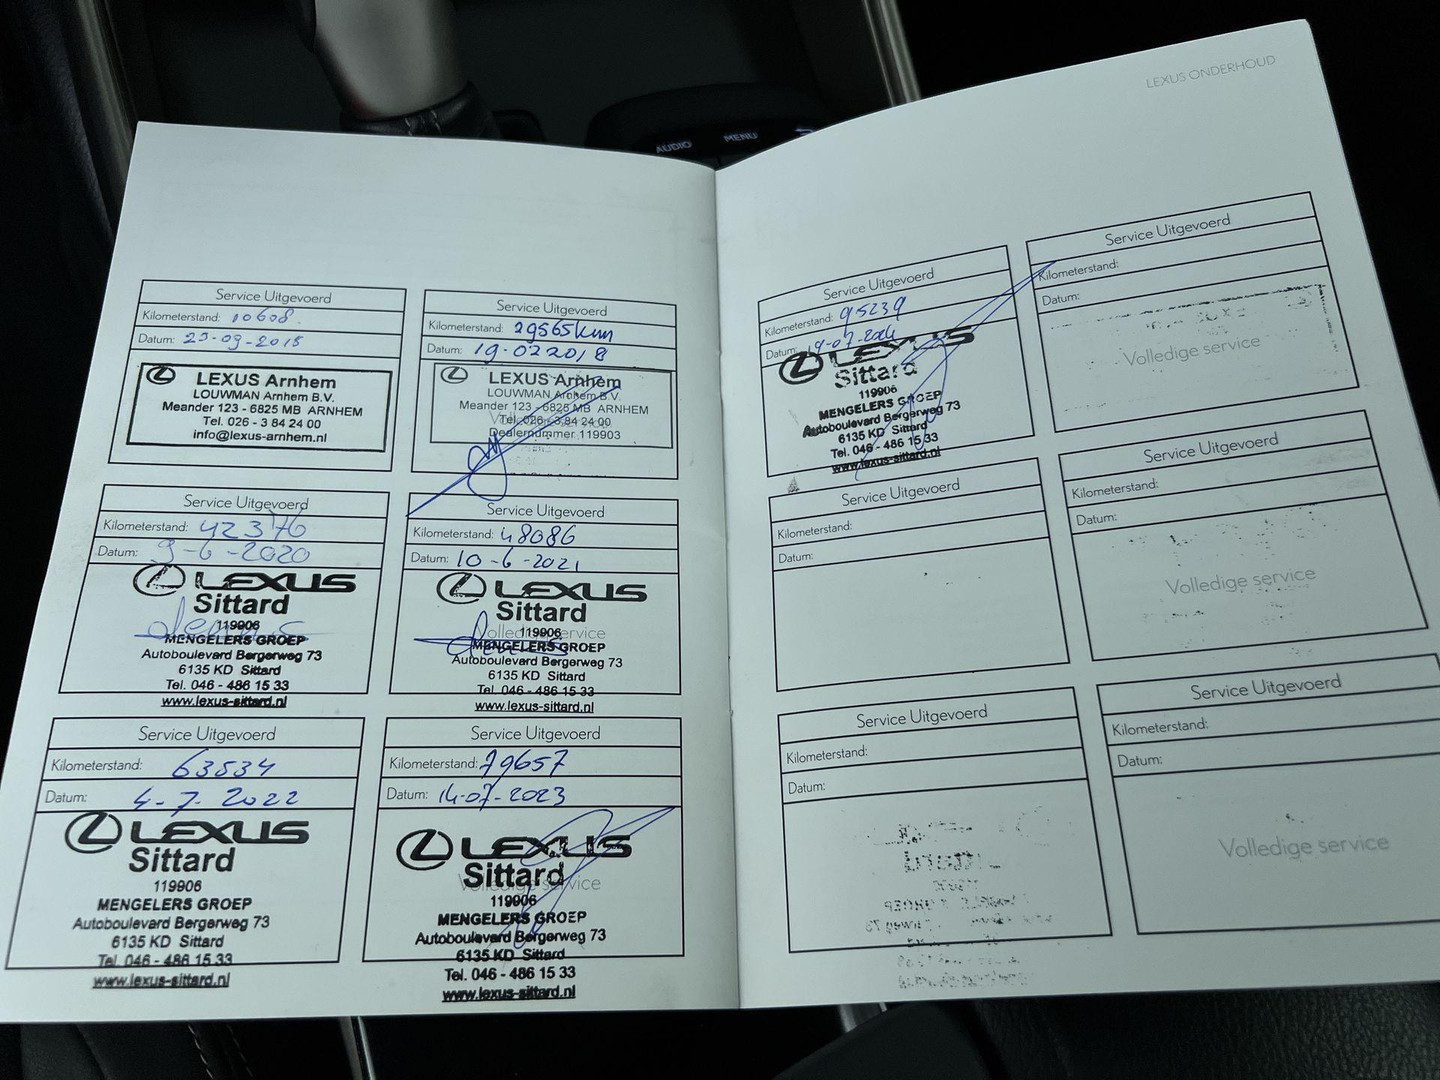 AUDIO
MENU
LEXUS ONDERHOUD
Service Uitgevoerd
Kilometerstand: 10608
Datum: 23-09-2015
LEXUS Arnhem
LOUWMAN Arnhem B.V.
Meander 123 - 6825 MB ARNHEM
Tel. 026 - 3 84 24 00
info@lexus-arnhem.nl
Service Uitgevoerd
Kilometerstand: 29565km
Datum: 19-022018
LEXUS Arnhem
LOUWMAN Arnhem B.V.
Meander 123 - 6825 MB ARNHEM
Tel. 026 - 3 84 24 00
Dealernummer 119903
Service Uitgevoerd
Kilometerstand: 42376
Datum: 9-6-2020
LEXUS
Sittard
119906
MENGELERS GROEP
Autoboulevard Bergerweg 73
6135 KD Sittard
Tel. 046 - 486 15 33
www.lexus-sittard.nl
Service Uitgevoerd
Kilometerstand: 48086
Datum: 10-6-2021
LEXUS
Sittard
119906
Volledige service
MENGELERS GROEP
Autoboulevard Bergerweg 73
6135 KD Sittard
Tel. 046 - 486 15 33
www.lexus-sittard.nl
Service Uitgevoerd
Kilometerstand: 63534
Datum: 4-7-2022
LEXUS
Sittard
119906
MENGELERS GROEP
Autoboulevard Bergerweg 73
6135 KD Sittard
Tel. 046 - 486 15 33
www.lexus-sittard.nl
Service Uitgevoerd
Kilometerstand: 79657
Datum: 14-07-2023
LEXUS
Sittard
Volledige service
119906
MENGELERS GROEP
Autoboulevard Bergerweg 73
6135 KD Sittard
Tel. 046 - 486 15 33
www.lexus-sittard.nl
Service Uitgevoerd
Kilometerstand: 95239
Datum: 19-07-2024
LEXUS
Sittard
119906
MENGELERS GROEP
Autoboulevard Bergerweg 73
6135 KD Sittard
Tel. 046 - 486 15 33
www.lexus-sittard.nl
Service Uitgevoerd
Kilometerstand:
Datum:
Volledige service
Service Uitgevoerd
Kilometerstand:
Datum:
Service Uitgevoerd
Kilometerstand:
Datum:
Volledige service
Service Uitgevoerd
Kilometerstand:
Datum:
Service Uitgevoerd
Kilometerstand:
Datum:
Volledige service